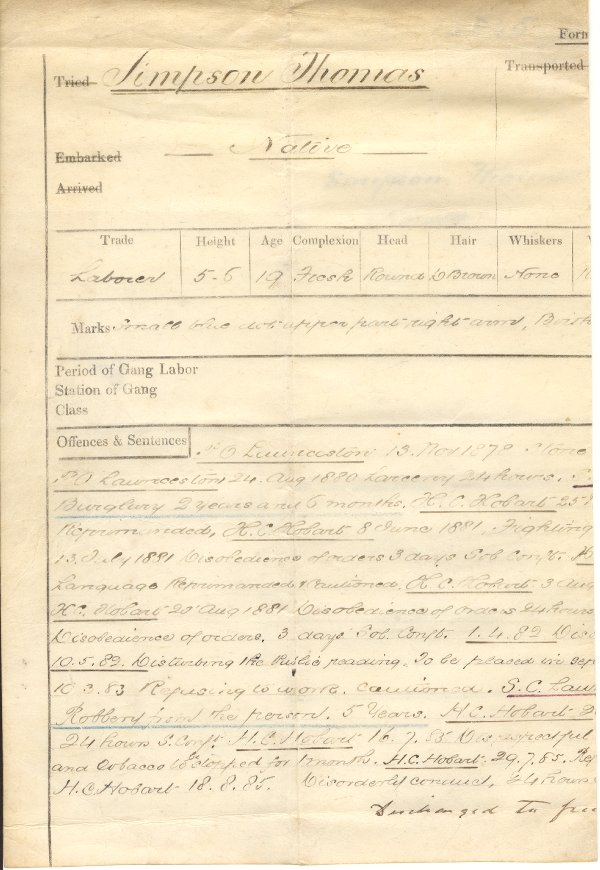 Form
Tried Simpson Thomas Transported
Embarked Native
Arrived
Trade Height Age Complexion Head Hair Whiskers
Laborer 5-6 19 Fresh Round D Brown None
Marks Small blue dot upper part right arm,
Period of Gang Labor
Station of Gang
Class
Offences & Sentences P.O Launceston 13. Nov 1878 Stone
P.O Launceston 24. Aug 1880 Larceny 24 hours.
Burglury 2 years and 6 months. H.C. Hobart 25
Reprimanded, H.C. Hobart 8 June 1881. Fighting
13. July 1881 Disobedience of orders 3 days Sol. Conft.
Language Reprimanded & Cautioned. H.C. Hobart 3 Aug
H.C. Hobart 20 Aug 1881 Disobedience of Orders 24 hours
Disobedience of orders, 3 days Sol. Conft. 1.4.82
10.5.82. Disturbing the Public reading. To be placed in
10.3.83 Refusing to work. Cautioned. S.C. Laun
Robbery from the person. 5 Years. H.C. Hobart 2
24 hours S. Conft. H.C. Hobart 16.7.85 Disrespectful
and tobacco to be stopped for 1 month. H.C. Hobart. 29.7.85.
H.C. Hobart 18.8.85. Disorderly conduct, 24 hours
Discharged to